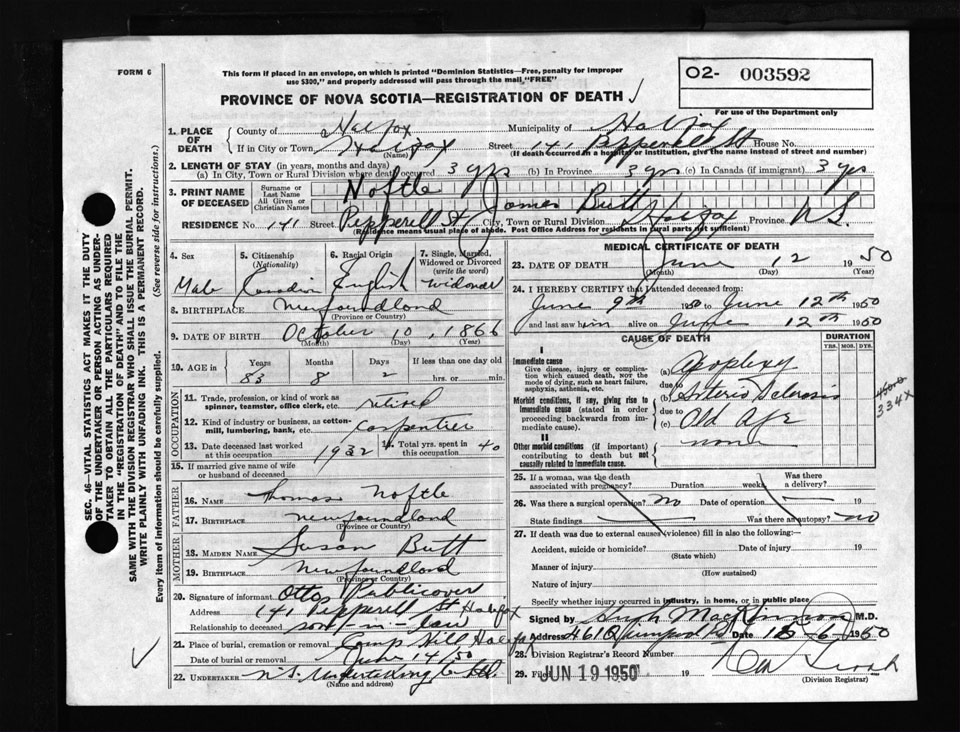 FORM 6
This form if placed in an envelope, on which is printed "Dominion Statistics—Free, penalty for improper
use $300," and properly addressed will pass through the mail "FREE"
O2- 003592
PROVINCE OF NOVA SCOTIA—REGISTRATION OF DEATH
For use of the Department only
1. PLACE OF DEATH
County of Halifax Municipality of Halifax
If in City or Town Halifax (Name) Street 141 Pepperell St House No.
(If death occurred in a hospital or institution, give the name instead of street and number)
2. LENGTH OF STAY (in years, months and days)
(a) In City, Town or Rural Division where death occurred 3 yrs (b) In Province 3 yrs (c) In Canada (if immigrant) 3 yrs
3. PRINT NAME OF DECEASED
Surname or Last Name Noftle
All Given or Christian Names James Butt
RESIDENCE No. 141 Street Pepperell St City, Town or Rural Division Halifax Province N.S.
(Residence means usual place of abode. Post Office Address for residents in rural parts not sufficient)
4. Sex Male
5. Citizenship (Nationality) Canadian
6. Racial Origin English
7. Single, Married, Widowed or Divorced (write the word) Widower
8. BIRTHPLACE Newfoundland
(Province or Country)
9. DATE OF BIRTH October 10, 1866
(Month) (Day) (Year)
10. AGE in Years Months Days If less than one day old
83 8 2 hrs. or min.
OCCUPATION
11. Trade, profession, or kind of work as spinner, teamster, office clerk, etc. retired
12. Kind of industry or business, as cotton-mill, lumbering, bank, etc. Carpenter
13. Date deceased last worked at this occupation 1932
14. Total yrs. spent in this occupation 40
15. If married give name of wife or husband of deceased
FATHER
16. Name Thomas Noftle
17. Birthplace Newfoundland
(Province or Country)
MOTHER
18. Maiden Name Susan Butt
19. Birthplace Newfoundland
(Province or Country)
20. Signature of informant Otto Publicover
Address 141 Pepperell St Halifax
Relationship to deceased son-in-law
21. Place of burial, cremation or removal Camp Hill Halifax
Date of burial or removal June 14/50
22. UNDERTAKER N.S. Undertaking Co Ltd.
(Name and address)
MEDICAL CERTIFICATE OF DEATH
23. DATE OF DEATH June 12 1950
(Month) (Day) (Year)
24. I HEREBY CERTIFY that I attended deceased from:
June 9th 1950 to June 12th 1950
and last saw him alive on June 12th 1950
CAUSE OF DEATH
DURATION
YRS. MOS. DYS.
I
Immediate cause
Give disease, injury or complication which caused death, NOT the mode of dying, such as heart failure, asphyxia, asthenia, etc.
(a) Apoplexy
due to
Morbid conditions, if any, giving rise to immediate cause (stated in order proceeding backwards from immediate cause).
(b) Arterio Sclerosis
due to
(c) Old Age
II
Other morbid conditions (if important) contributing to death but not causally related to immediate cause.
none
334X
25. If a woman, was the death associated with pregnancy? Duration weeks Was there a delivery?
26. Was there a surgical operation? no Date of operation 19
State findings Was there an autopsy? no
27. If death was due to external causes (violence) fill in also the following:—
Accident, suicide or homicide? (State which) Date of injury 19
Manner of injury
(How sustained)
Nature of injury
Specify whether injury occurred in industry, in home, or in public place
Signed by Hugh MacKinnon M.D.
Address 461 Quinpool Rd Date 6 1950
28. Division Registrar's Record Number
29. Filed JUN 19 1950 19
(Division Registrar)
SEC. 46—VITAL STATISTICS ACT MAKES IT THE DUTY
OF THE UNDERTAKER OR PERSON ACTING AS UNDER-
TAKER TO OBTAIN ALL THE PARTICULARS REQUIRED
IN THE "REGISTRATION OF DEATH" AND TO FILE THE
SAME WITH THE DIVISION REGISTRAR WHO SHALL ISSUE THE BURIAL PERMIT.
WRITE PLAINLY WITH UNFADING INK. THIS IS A PERMANENT RECORD.
Every item of information should be carefully supplied. (See reverse side for instructions.)